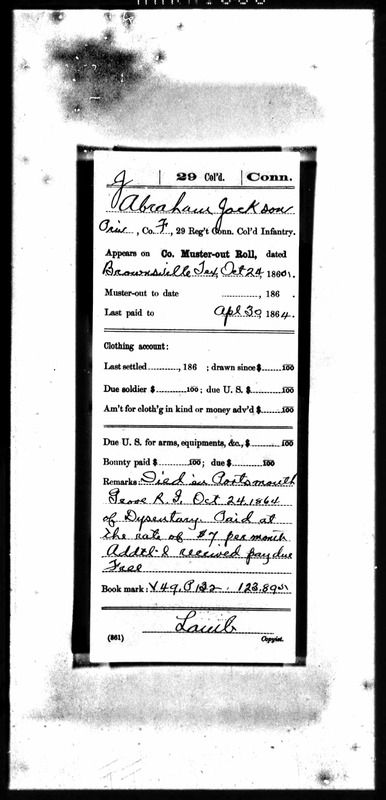 J | 29 Col'd. | Conn.
Abraham Jackson
Priv., Co. F, 29 Reg't Conn. Col'd Infantry.
Appears on Co. Muster-out Roll, dated
Brownsville Tex, Oct 24, 1865.
Muster-out to date ............, 186 .
Last paid to Apl 30, 1864.
Clothing account:
Last settled............, 186 ; drawn since $........100
Due soldier $........100; due U. S. $........100
Am't for cloth'g in kind or money adv'd $........100
Due U. S. for arms, equipments, &c., $........100
Bounty paid $........100; due $........100
Remarks: Died in Portsmouth
Grove R. I. Oct 24. 1864
of Dysentary. Paid at
the rate of $7 per month
Addtl & received pay due
Free
Book mark: V49, P132 - 123.89
Lamb
(361) Copyist.